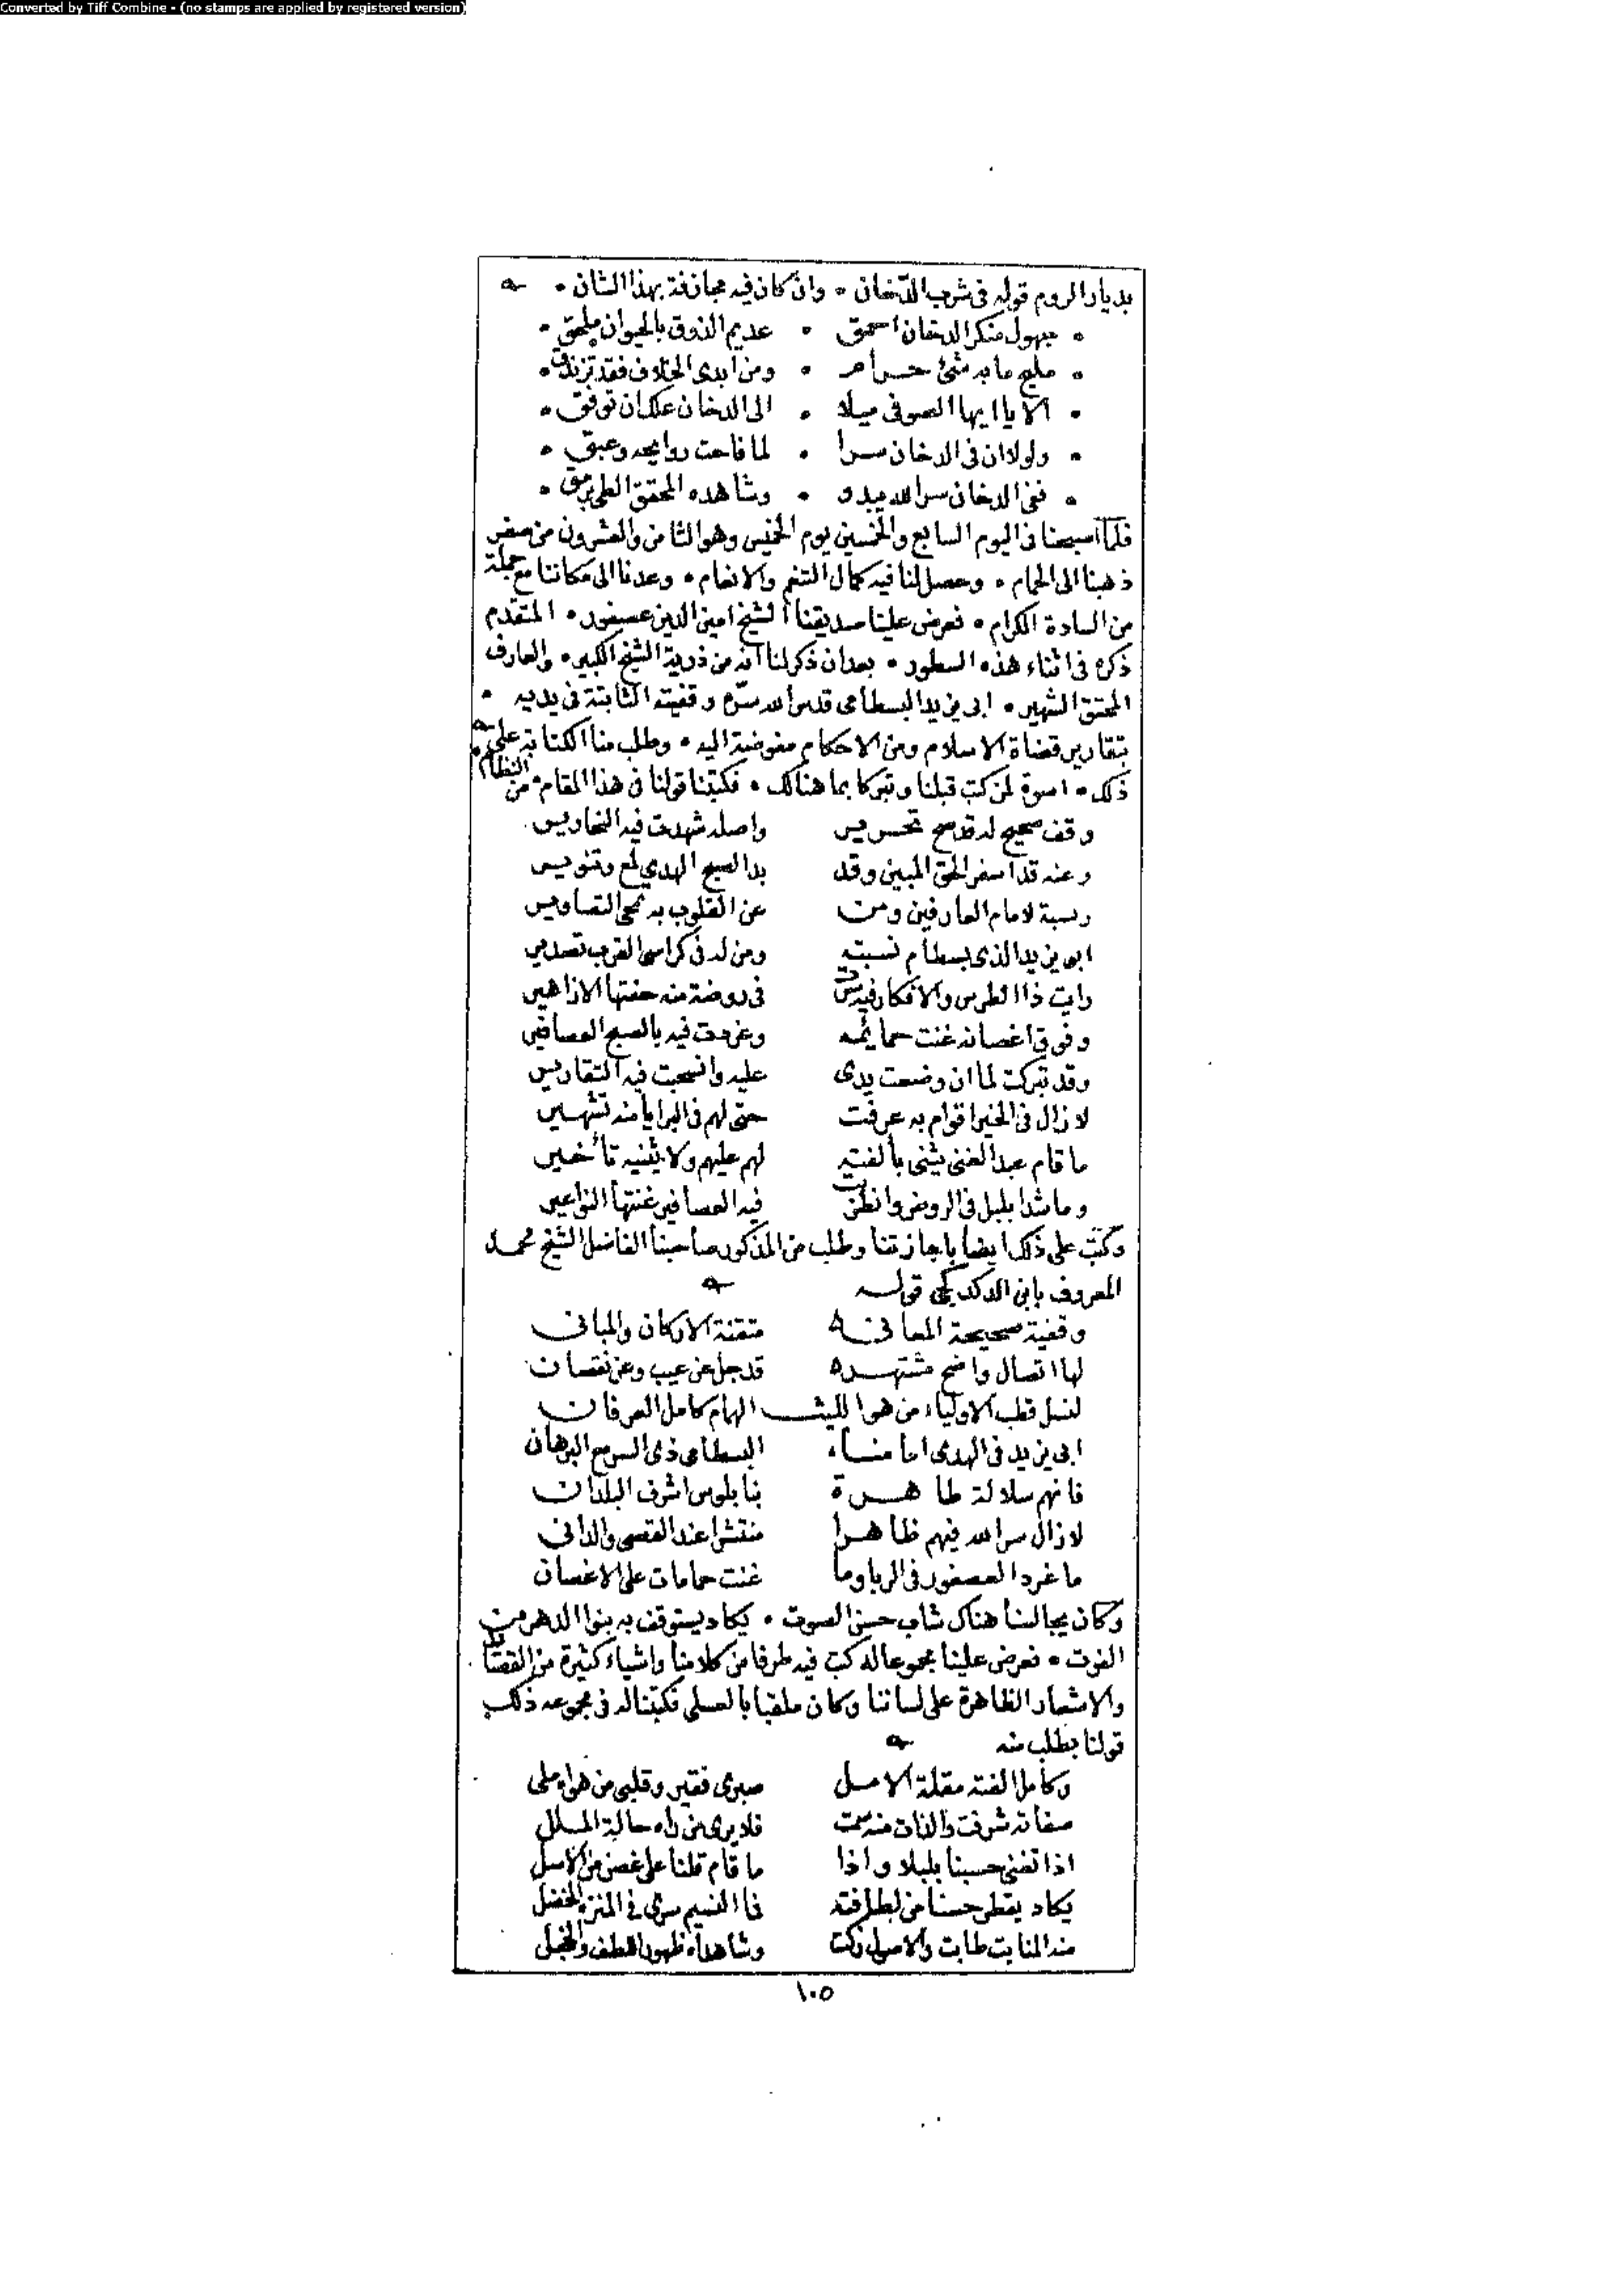 Converted by Tiff Combine - (no stamps are applied by registered version)
بديار الروم قوله فى شرب الدخان • وان كان فيه مجازفة بهذا الشان •
• جهول منكر الدخان احمق • عديم الذوق بالحيوان ملحق •
• مليح ما به شئ حرام • ومن ابدى الخلاف فقد تزندق •
• الا يا ايها الصوفى ميلا • الى الدخان علك ان توفق •
• ولولا ان فى الدخان سرا • لما فاحت روايحه وعبق •
• ففى الدخان سر الله يبدو • وشاهده المحقق
فلما اصبحنا فى اليوم السابع والخمسين يوم الخميس وهو الثامن والعشرون من صفر
ذهبنا الى الحمام • وحصل لنا فيه كمال التنعم والانعام • وعدنا الى مكاننا مع جملة
من السادة الكرام • فعرض علينا صديقنا الشيخ امين الدين عصفور • المتقدم
ذكره فى اثناء هذه السطور • بعد ان ذكر لنا انه من ذرية الشيخ الكبير • والعارف
المحقق الشهير • ابى يزيد البسطامى قدس الله سره وقفيته الثابتة فى يديه •
بتقارير قضاة الاسلام ومن الاحكام مفوضة اليه • وطلب منا الكتابة على
ذلك • اسوة لمن كتب قبلنا وتبركا بما هنالك • فكتبنا قولنا فى هذا المقام • من النظام
وقف صحيح له قد صح تحرير واصله شهدت فيه النحارير
وعنه قد اسفر الحق المبين وقد بدا لصبح الهدى لمع وتنوير
ونسبة لامام العارفين ومن عن القلوب به تمحى التصاوير
ابو يزيد الذى بسطام نسبته ومن له فى كراسى القرب تصدير
رايت ذا الطرس والافكار فيه فى روضة منه حفتها الازاهير
وفوق اغصانه غنت حمايمه وغردت فيه بالصبح العصافير
وقد تبركت لما ان وضعت يدى عليه وانسحبت فيه التقارير
لا زال فى الخير اقوام به عرفت حتى لهم فى البرايا منه تشهير
ما قام عبد الغنى يثنى بألفته لهم عليهم ولا يثنيه تأخير
وما شدا بلبل فى الروض وانطلقت فيه العصافير غنتها النواعير
وكتب على ذلك ايضا باجازتنا وطلب من المذكور صاحبنا الفاضل الشيخ محمد
المعروف بابن الدكدكجى قوله
وقفية صحيحة المعانى متقنة الاركان والمبانى
لها اتصال واضح مشتهر قد جل عن عيب وعن نقصان
لنسل قطب الاولياء من هو الليث الهمام كامل العرفان
ابى يزيد فى الهدى امامنا البسطامى ذى السر مع البرهان
فانهم سلالة طاهرة بنابلوس اشرف البلدان
لا زال سر الله فيهم ظاهرا منتشرا عند القصى والدانى
ما غرد العصفور فى الربا وما غنت حمامات على الاغصان
وكان يجالسنا هناك شاب حسن الصوت • يكاد يستوقف به بنوا الدهر من
الفوت • فعرض علينا مجموعا له كتب فيه طرفا من كلامنا واشياء كثيرة من القصائد
والاشعار الظاهرة على لساننا وكان ملقبا بالعسلى فكتبنا له فى مجموعه ذلك
قولنا بطلب منه
وكامل الفته مقلة الامل صبرى فقير وقلبى من هواه ملى
صفاته شرفت والذات منه سمت فلا يرى من راه حالة الملل
اذا تغنى حسبنا بلبلا واذا ما قام قلنا على غصن من الاسل
يكاد يقطر حسنا من لطافته فما النسيم سرى فى المنزه الخضل
منه المنابت طابت والاصول زكت وشاهداه ظهور اللطف والخجل
١٠٥